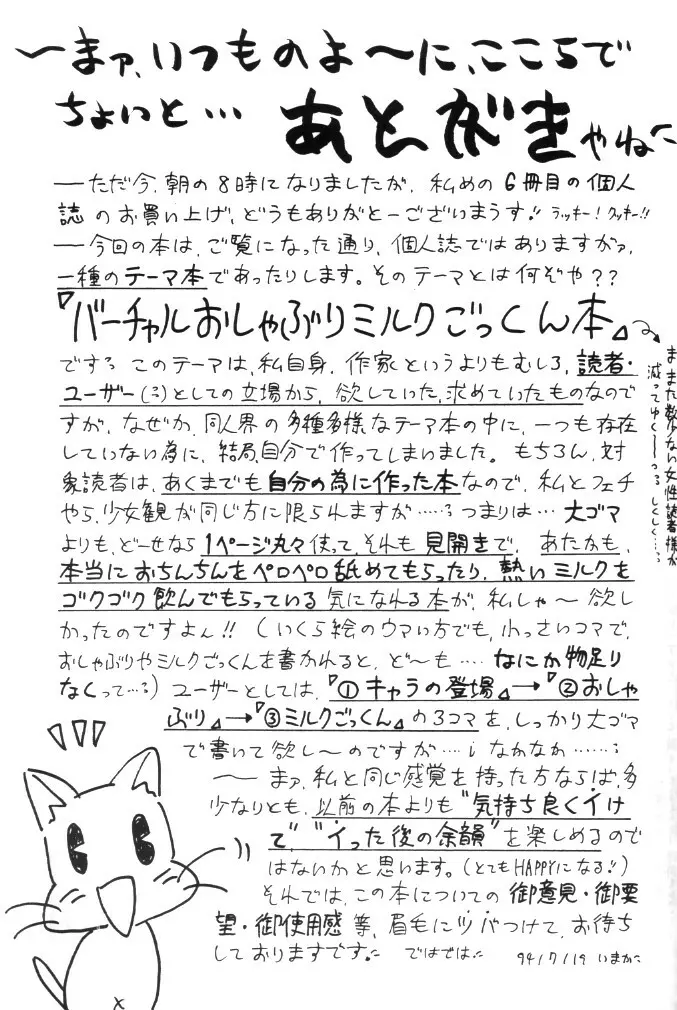 〜まァ、いつものよ〜に、ここらで
ちょいと… あとがきやね
── ただ今、朝の8時になりましたが、私めの6冊目の個人
誌のお買い上げ、どうもありがと〜ございまうす!! ラッキー!クッキー!!
── 今回の本は、ご覧になった通り、個人誌ではありますがァ、
一種のテーマ本であったりします。そのテーマとは何ぞや??
『バーチャルおしゃぶりミルクごっくん本』
ですろ このテーマは、私自身、作家というよりもむしろ、読者・
ユーザー(?)としての立場から、欲していた、求めていたものなので
すが、なぜか、同人界の多種多様なテーマ本の中に、一つも存在
していない為に、結局、自分で作ってしまいました。もちろん、対
象読者は、あくまでも自分の為に作った本なので、私とフェチ
やら、少女観が同じ方に限られますが……つまりは…大ゴマ
よりも、ど〜せなら1ページ丸々使って、それも見開きで、あたかも、
本当におちんちんをペロペロ舐めてもらったり、熱いミルクを
ゴクゴク飲んでもらっている気になれる本が、私しゃ〜欲し
かったのですよん!!(いくら絵のウマい方でも、小っさいコマで、
おしゃぶりやミルクごっくんを書かれると、ど〜も‥‥なにか物足り
なくって…)ユーザーとしては、『①キャラの登場』→『②おしゃ
ぶり』→『③ミルクごっくん』の3コマを、しっかり大ゴマ
で書いて欲し〜のですが…なかなか……
── まァ、私と同じ感覚を持った方ならば、多
少なりとも、以前の本よりも"気持ち良くイけ
て"、"イった後の余韻"を楽しめるので
はないかと思います。(とてもHAPPYになる!!)
それでは、この本についての御意見・御要
望・御使用感 等、眉毛にツバつけて、お待ち
しておりますです。 ではでは 94/7/19 いまかに
ままた数少ない女性読者様が
減ってゆく── しくしく…